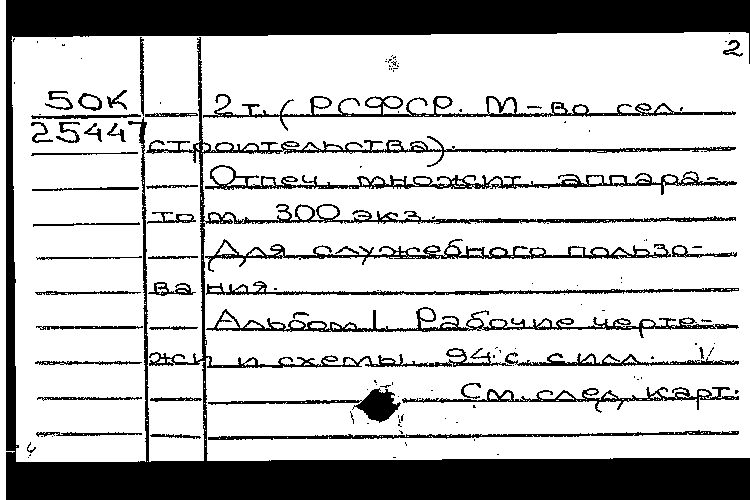 2
50К
25447
2 т. (РСФСР. М-во сел.
строительства).
Отпеч. множит. аппара-
том. 300 экз.
Для служебного пользо-
вания.
Альбом 1. Рабочие черте-
жи и схемы. 94 с. с илл. V
См. след. карт.